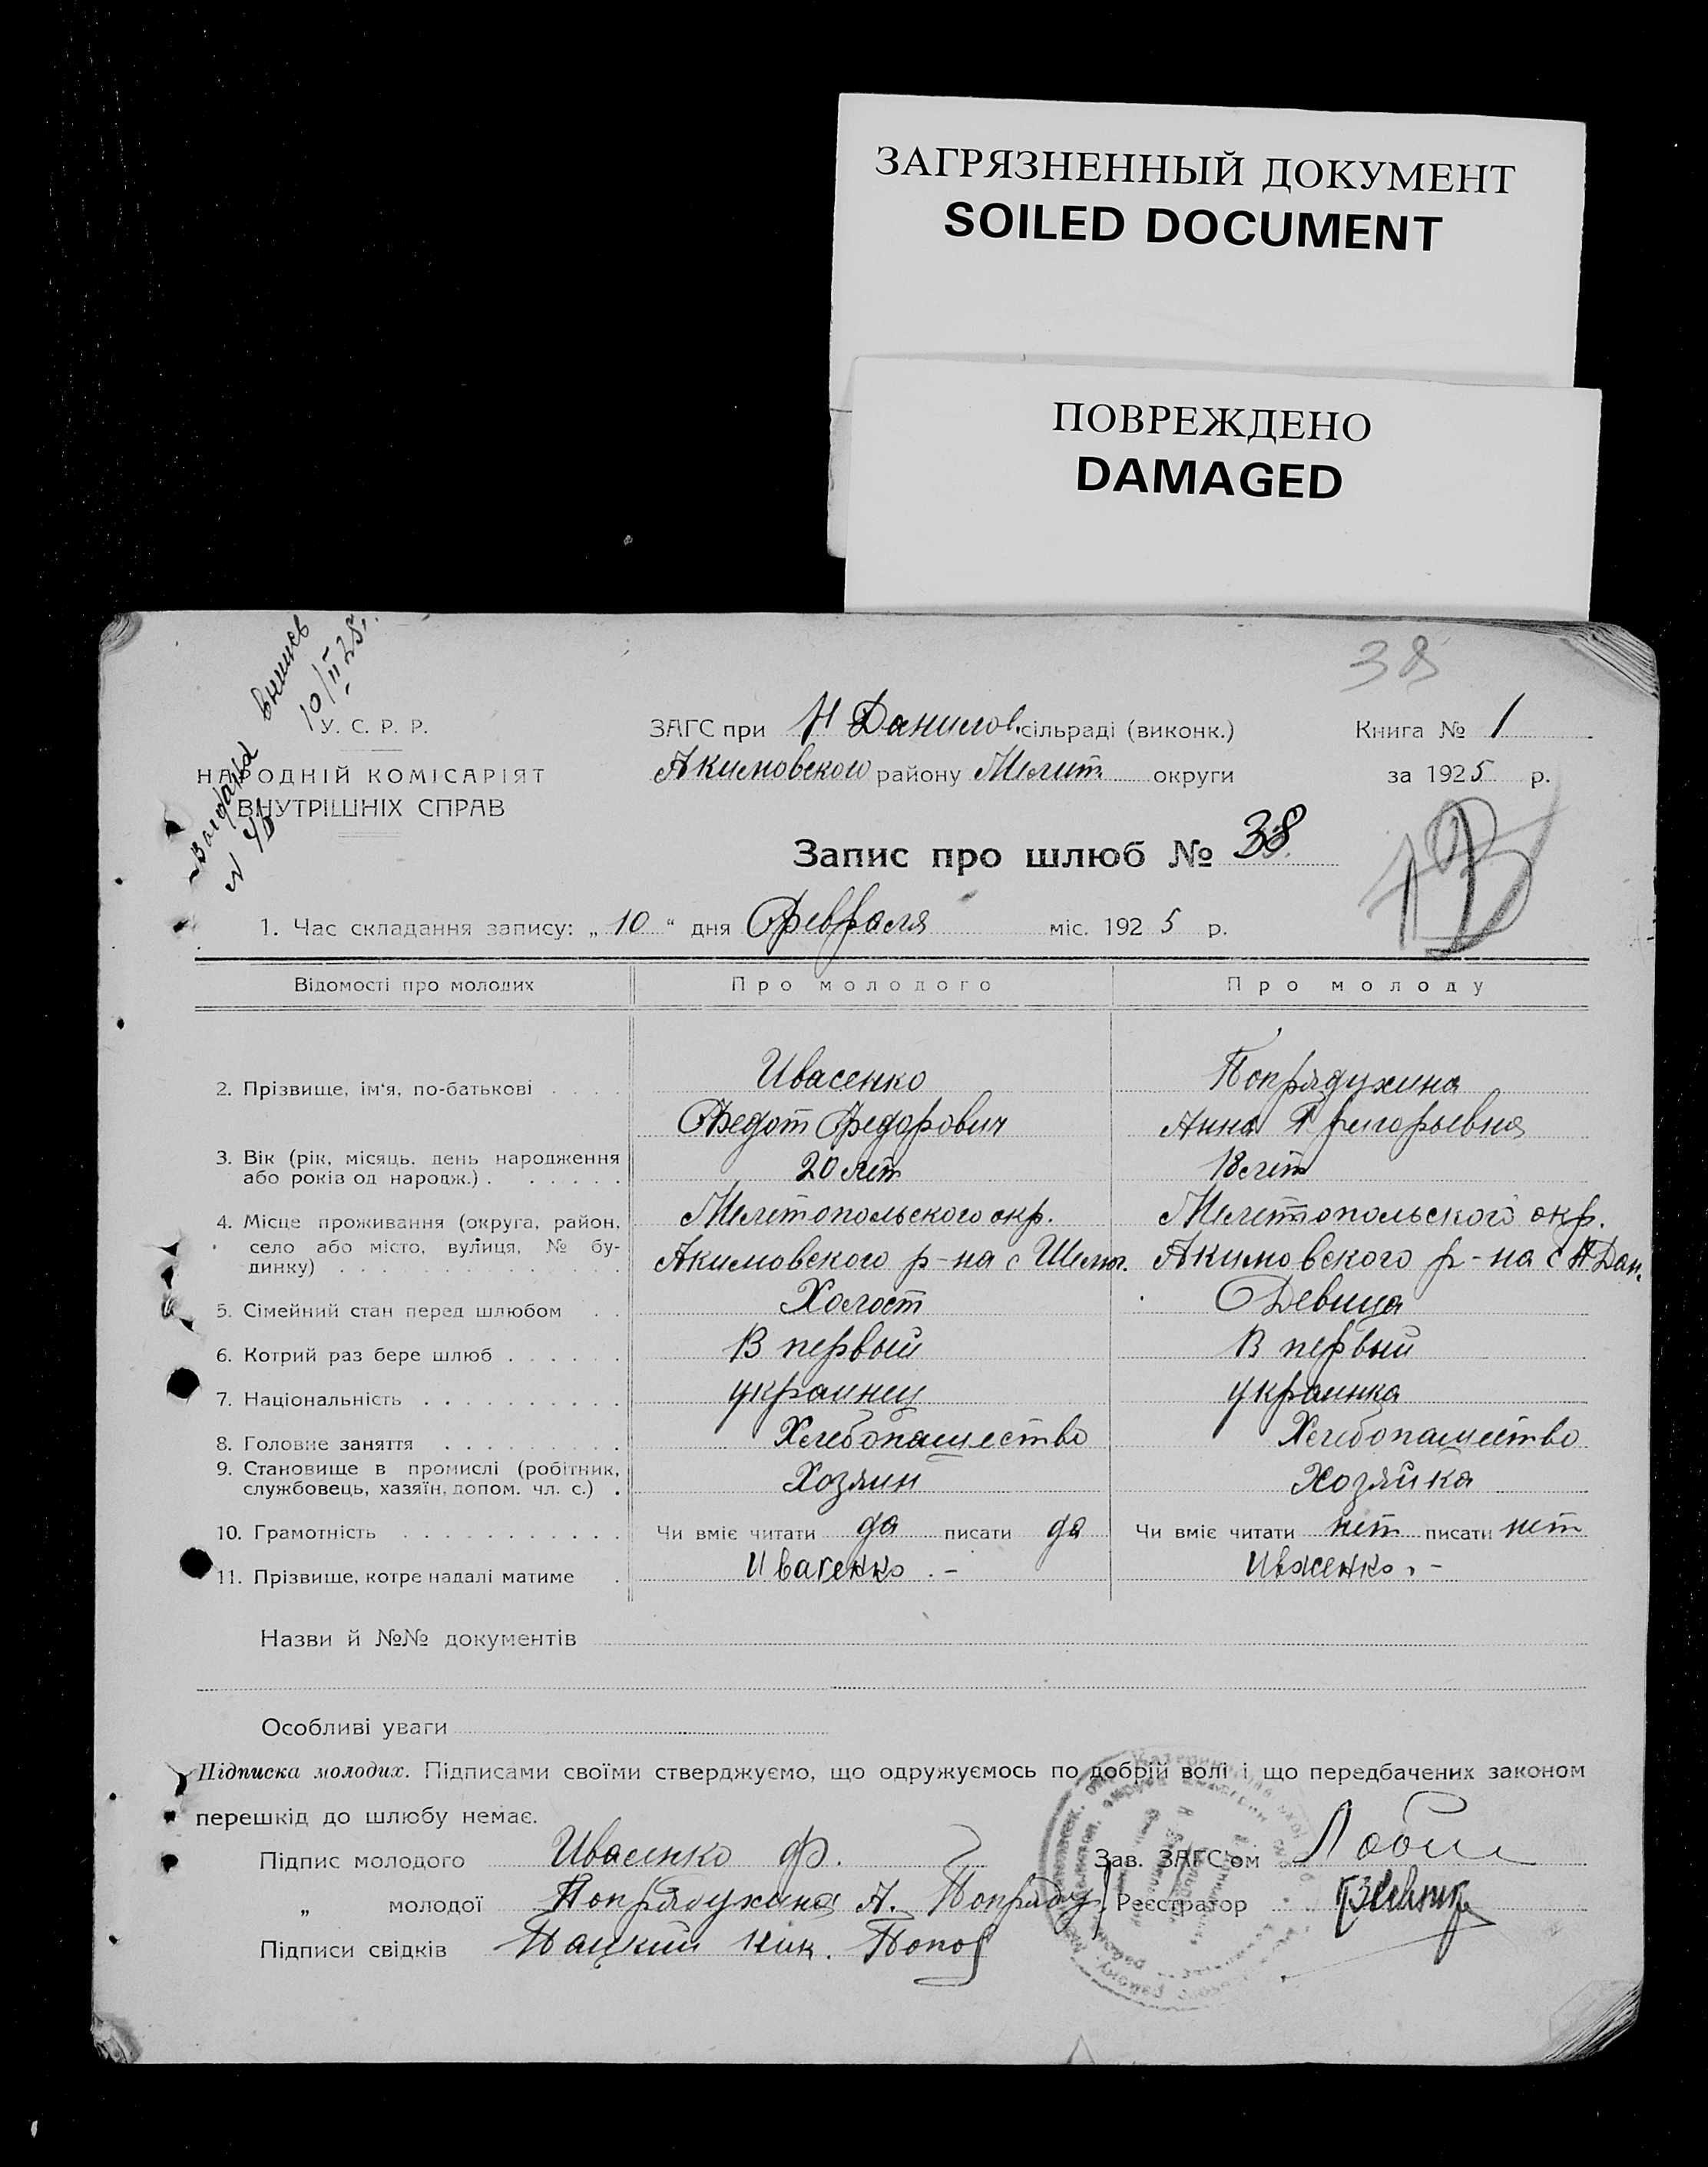 ЗАГРЯЗНЕННЫЙ ДОКУМЕНТ
SOILED DOCUMENT
ПОВРЕЖДЕНО
DAMAGED
38
Выдана выпись
10/II 25г.
N 40
У. С. Р. Р.
НАРОДНІЙ КОМІСАРІЯТ
ВНУТРІШНІХ СПРАВ
ЗАГС при Н Данилов. сільраді (виконк.)
Акимовского району Мелит округи
Книга № 1
за 1925 р.
Запис про шлюб № 38
1. Час складання запису: „10“ дня Февраля міс. 1925 р.
Відомості про молодих Про молодого Про молоду
2. Прізвище, ім'я, по-батькові Ивасенко Попрядухина
Федот Федорович Анна Григорьевна
3. Вік (рік, місяць, день народження
або років од народж.) 20 лет 18 лет
4. Місце проживання (округа, район, Мелитопольского окр. Мелитопольского окр.
село або місто, вулиця, № бу- Акимовского р-на с Шелюг. Акимовского р-на с Н Дан.
динку)
5. Сімейний стан перед шлюбом Холост Девица
6. Котрий раз бере шлюб В первый В первый
7. Національність украинец украинка
8. Головне заняття Хлебопашество Хлебопашество
9. Становище в промислі (робітник,
службовець, хазяїн, допом. чл. с.) Хозяин Хозяйка
10. Грамотність Чи вміє читати да писати да Чи вміє читати нет писати нет
11. Прізвище, котре надалі матиме Ивасенко. - Ивасенко. -
Назви й №№ документів
Особливі уваги
Підписка молодих. Підписами своїми стверджуємо, що одружуємось по добрій волі і що передбачених законом
перешкід до шлюбу немає.
Підпис молодого Ивасенко Ф.
Зав. ЗАГС'ом
„ молодої Попрядухина А. Попряду
Реєстратор
Підписи свідків Пацкий Ник. Попов